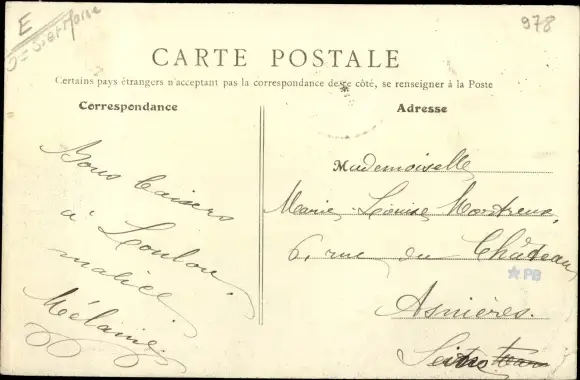 E
978
CARTE POSTALE
Certains pays étrangers n'acceptant pas la correspondance de ce côté, se renseigner à la Poste
Correspondance
Bons baisers
à Loulou,
malice
Mélanie.
Adresse
Mademoiselle
Marie Louise
6, rue du Château,
PB
Asnières.